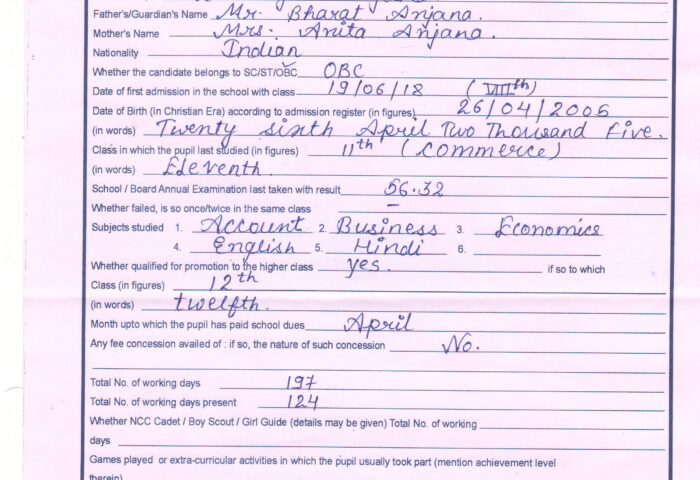 Father's/Guardian's Name Mr. Bharat Anjana.
Mother's Name Mrs. Anita Anjana.
Nationality Indian
Whether the candidate belongs to SC/ST/OBC OBC
Date of first admission in the school with class 19/06/18 (VIIIth)
Date of Birth (In Christian Era) according to admission register (in figures) 26/04/2005
(in words) Twenty sixth April Two Thousand Five.
Class in which the pupil last studied (in figures) 11th (Commerce)
(in words) Eleventh.
School / Board Annual Examination last taken with result 56.32
Whether failed, is so once/twice in the same class –
Subjects studied 1. Account 2. Business 3. Economics
4. English 5. Hindi 6.
Whether qualified for promotion to the higher class yes. if so to which
Class (in figures) 12th
(in words) twelfth.
Month upto which the pupil has paid school dues April
Any fee concession availed of : if so, the nature of such concession No.
Total No. of working days 197
Total No. of working days present 124
Whether NCC Cadet / Boy Scout / Girl Guide (details may be given) Total No. of working
days
Games played or extra-curricular activities in which the pupil usually took part (mention achievement level
therein)